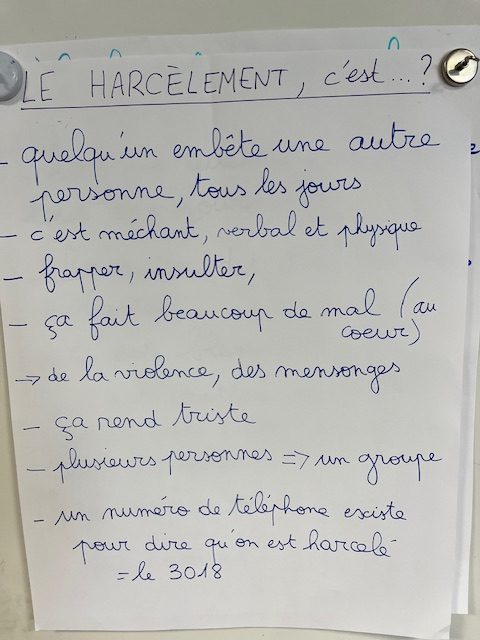 LE HARCÈLEMENT, c'est...?
- quelqu'un embête une autre
personne, tous les jours
- c'est méchant, verbal et physique
- frapper, insulter,
- ça fait beaucoup de mal (au
coeur)
→ de la violence, des mensonges
- ça rend triste
- plusieurs personnes => un groupe
- un numéro de téléphone existe
pour dire qu'on est harcelé
= le 3018